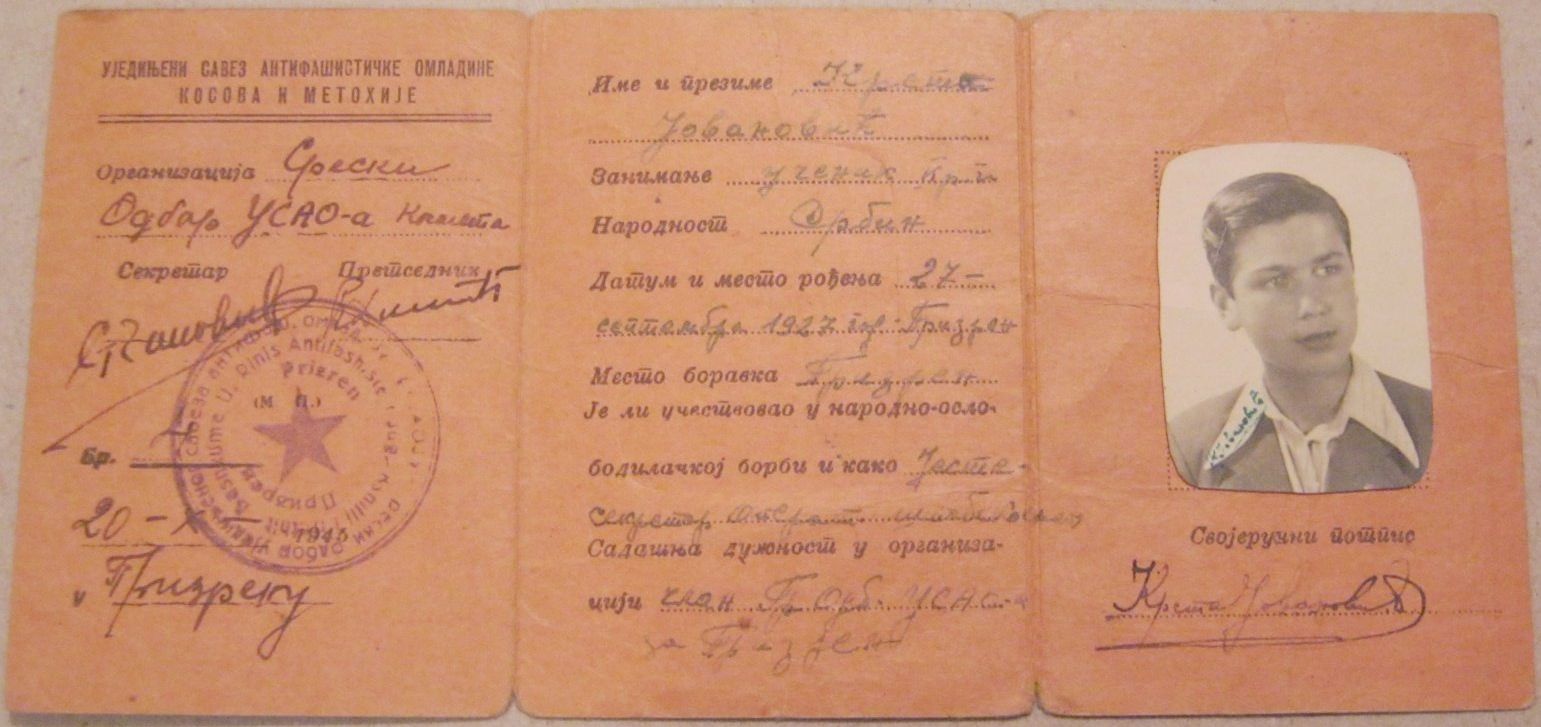 УЈЕДИЊЕНИ САВЕЗ АНТИФАШИСТИЧКЕ ОМЛАДИНЕ
КОСОВА И МЕТОХИЈЕ
Организација Срески
Одбор УСАО-а Космета
Секретар Претседник
(М. П.)
Prizren
Призрен
Бр.
20 - 1945
у Призрену
Име и презиме Крста
Јовановић
Занимање ученик
Народност Србин
Датум и место рођења 27-
септембра 1927 год. Призрен
Место боравка Призрен
Је ли учествовао у народно-осло-
бодилачкој борби и како Јесте-
секретар
Садашња дужност у организа-
цији члан Ср. Одб. УСАО-а
за Призрен
Својеручни потпис
Крста Јовановић